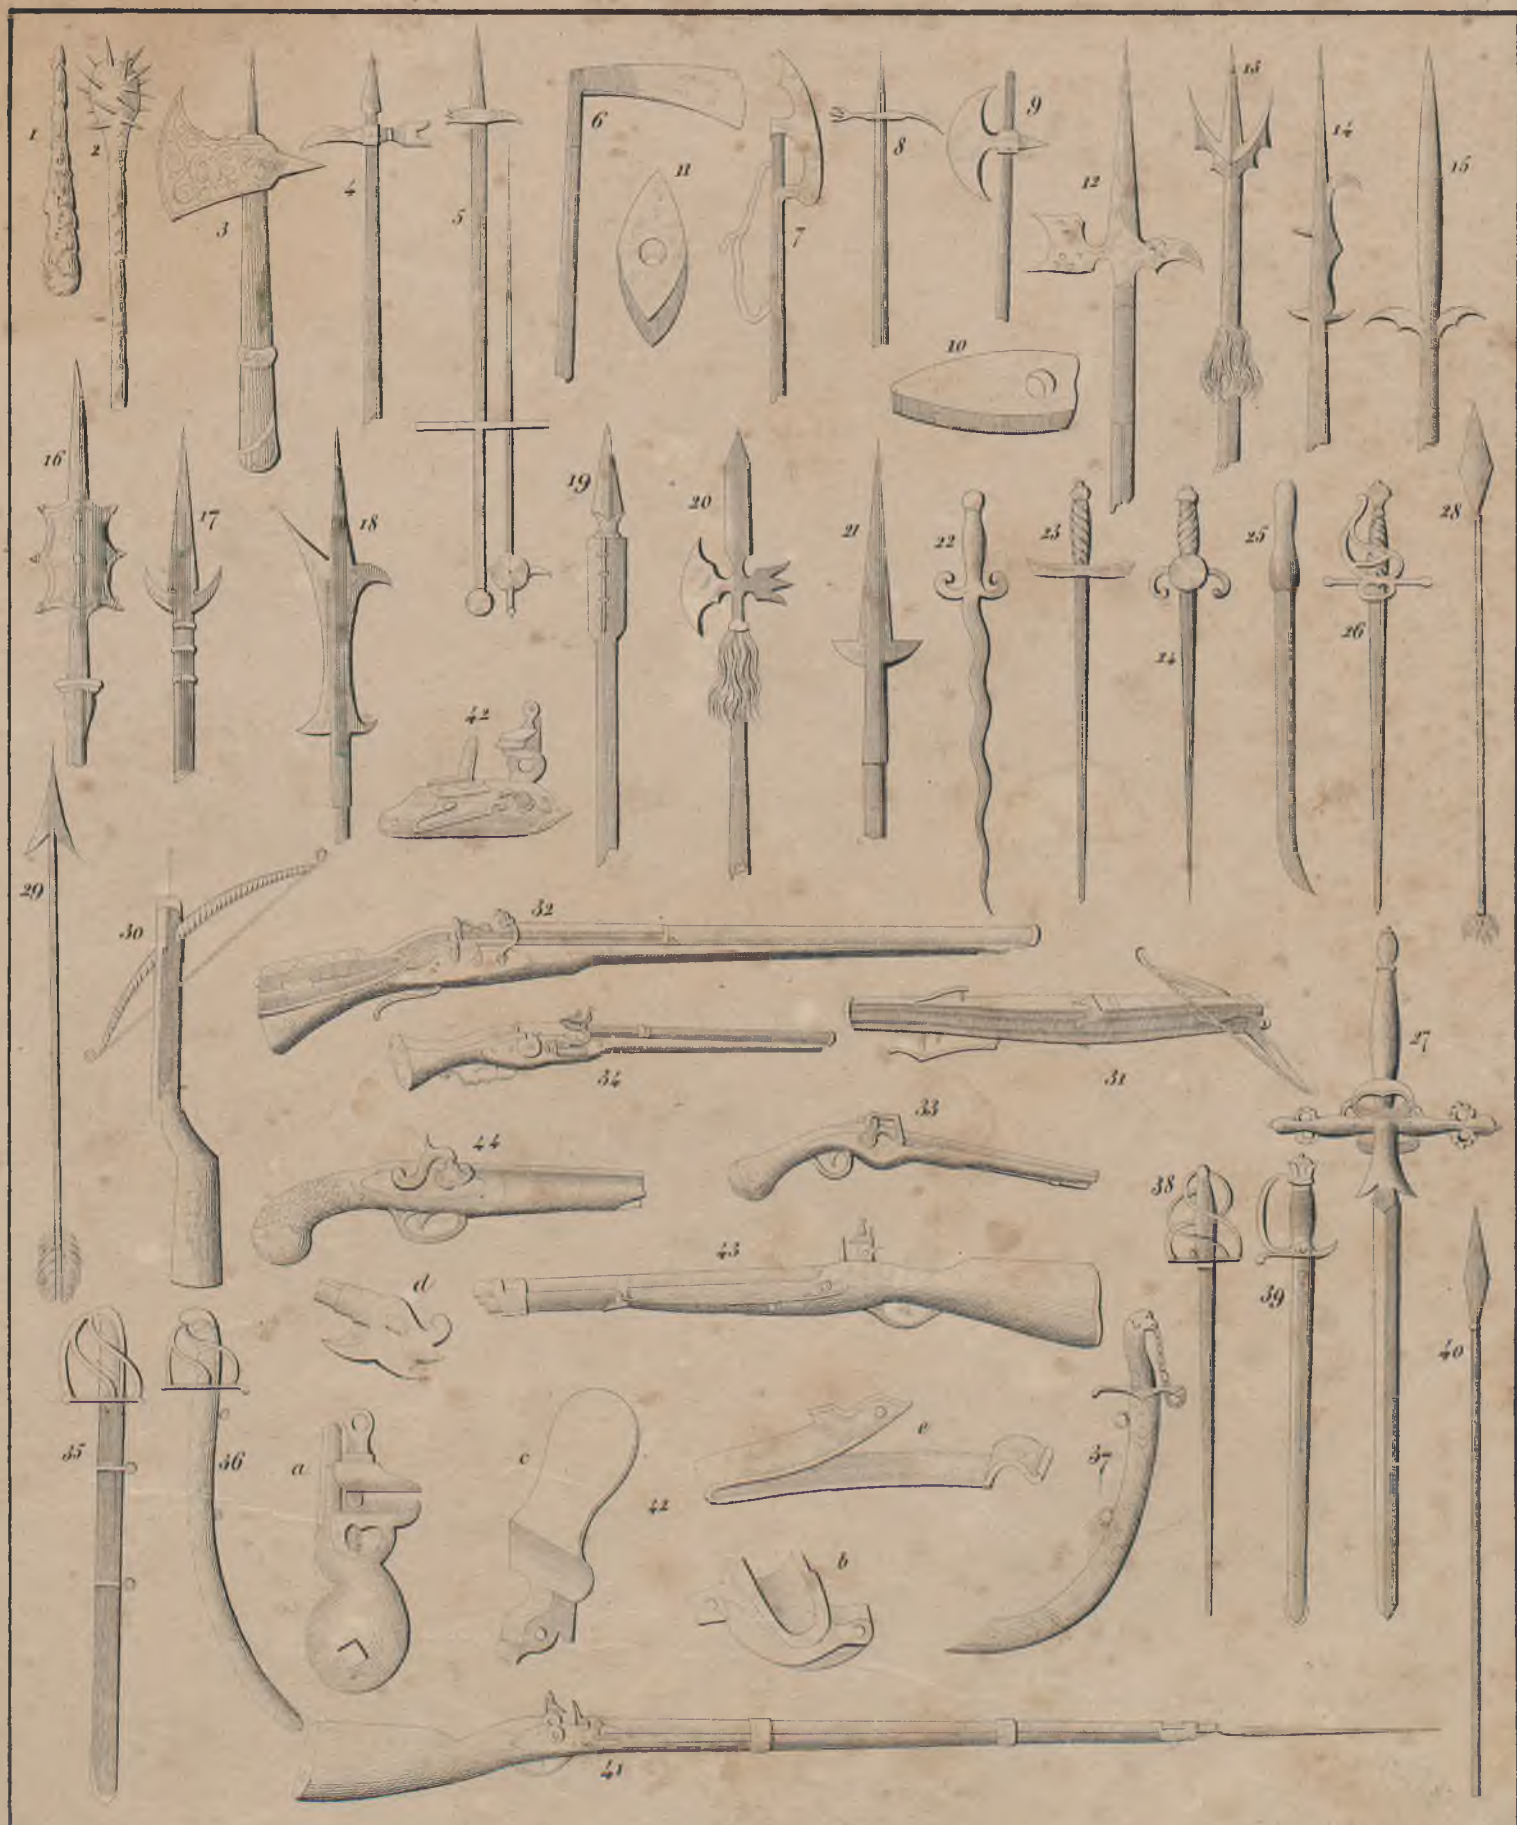 1
2
3
4
5
6
7
8
9
10
11
12
13
14
15
16
17
18
19
20
21
22
23
24
25
26
28
42
29
30
32
34
31
27
33
44
43
38
39
d
40
35
36
a
c
42
e
37
b
41